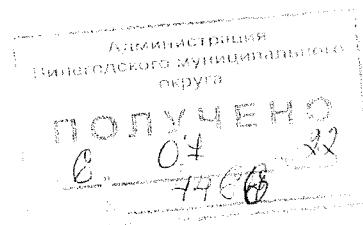 Администрация
Вилегодского муниципального
округа
ПОЛУЧЕНО
07 22